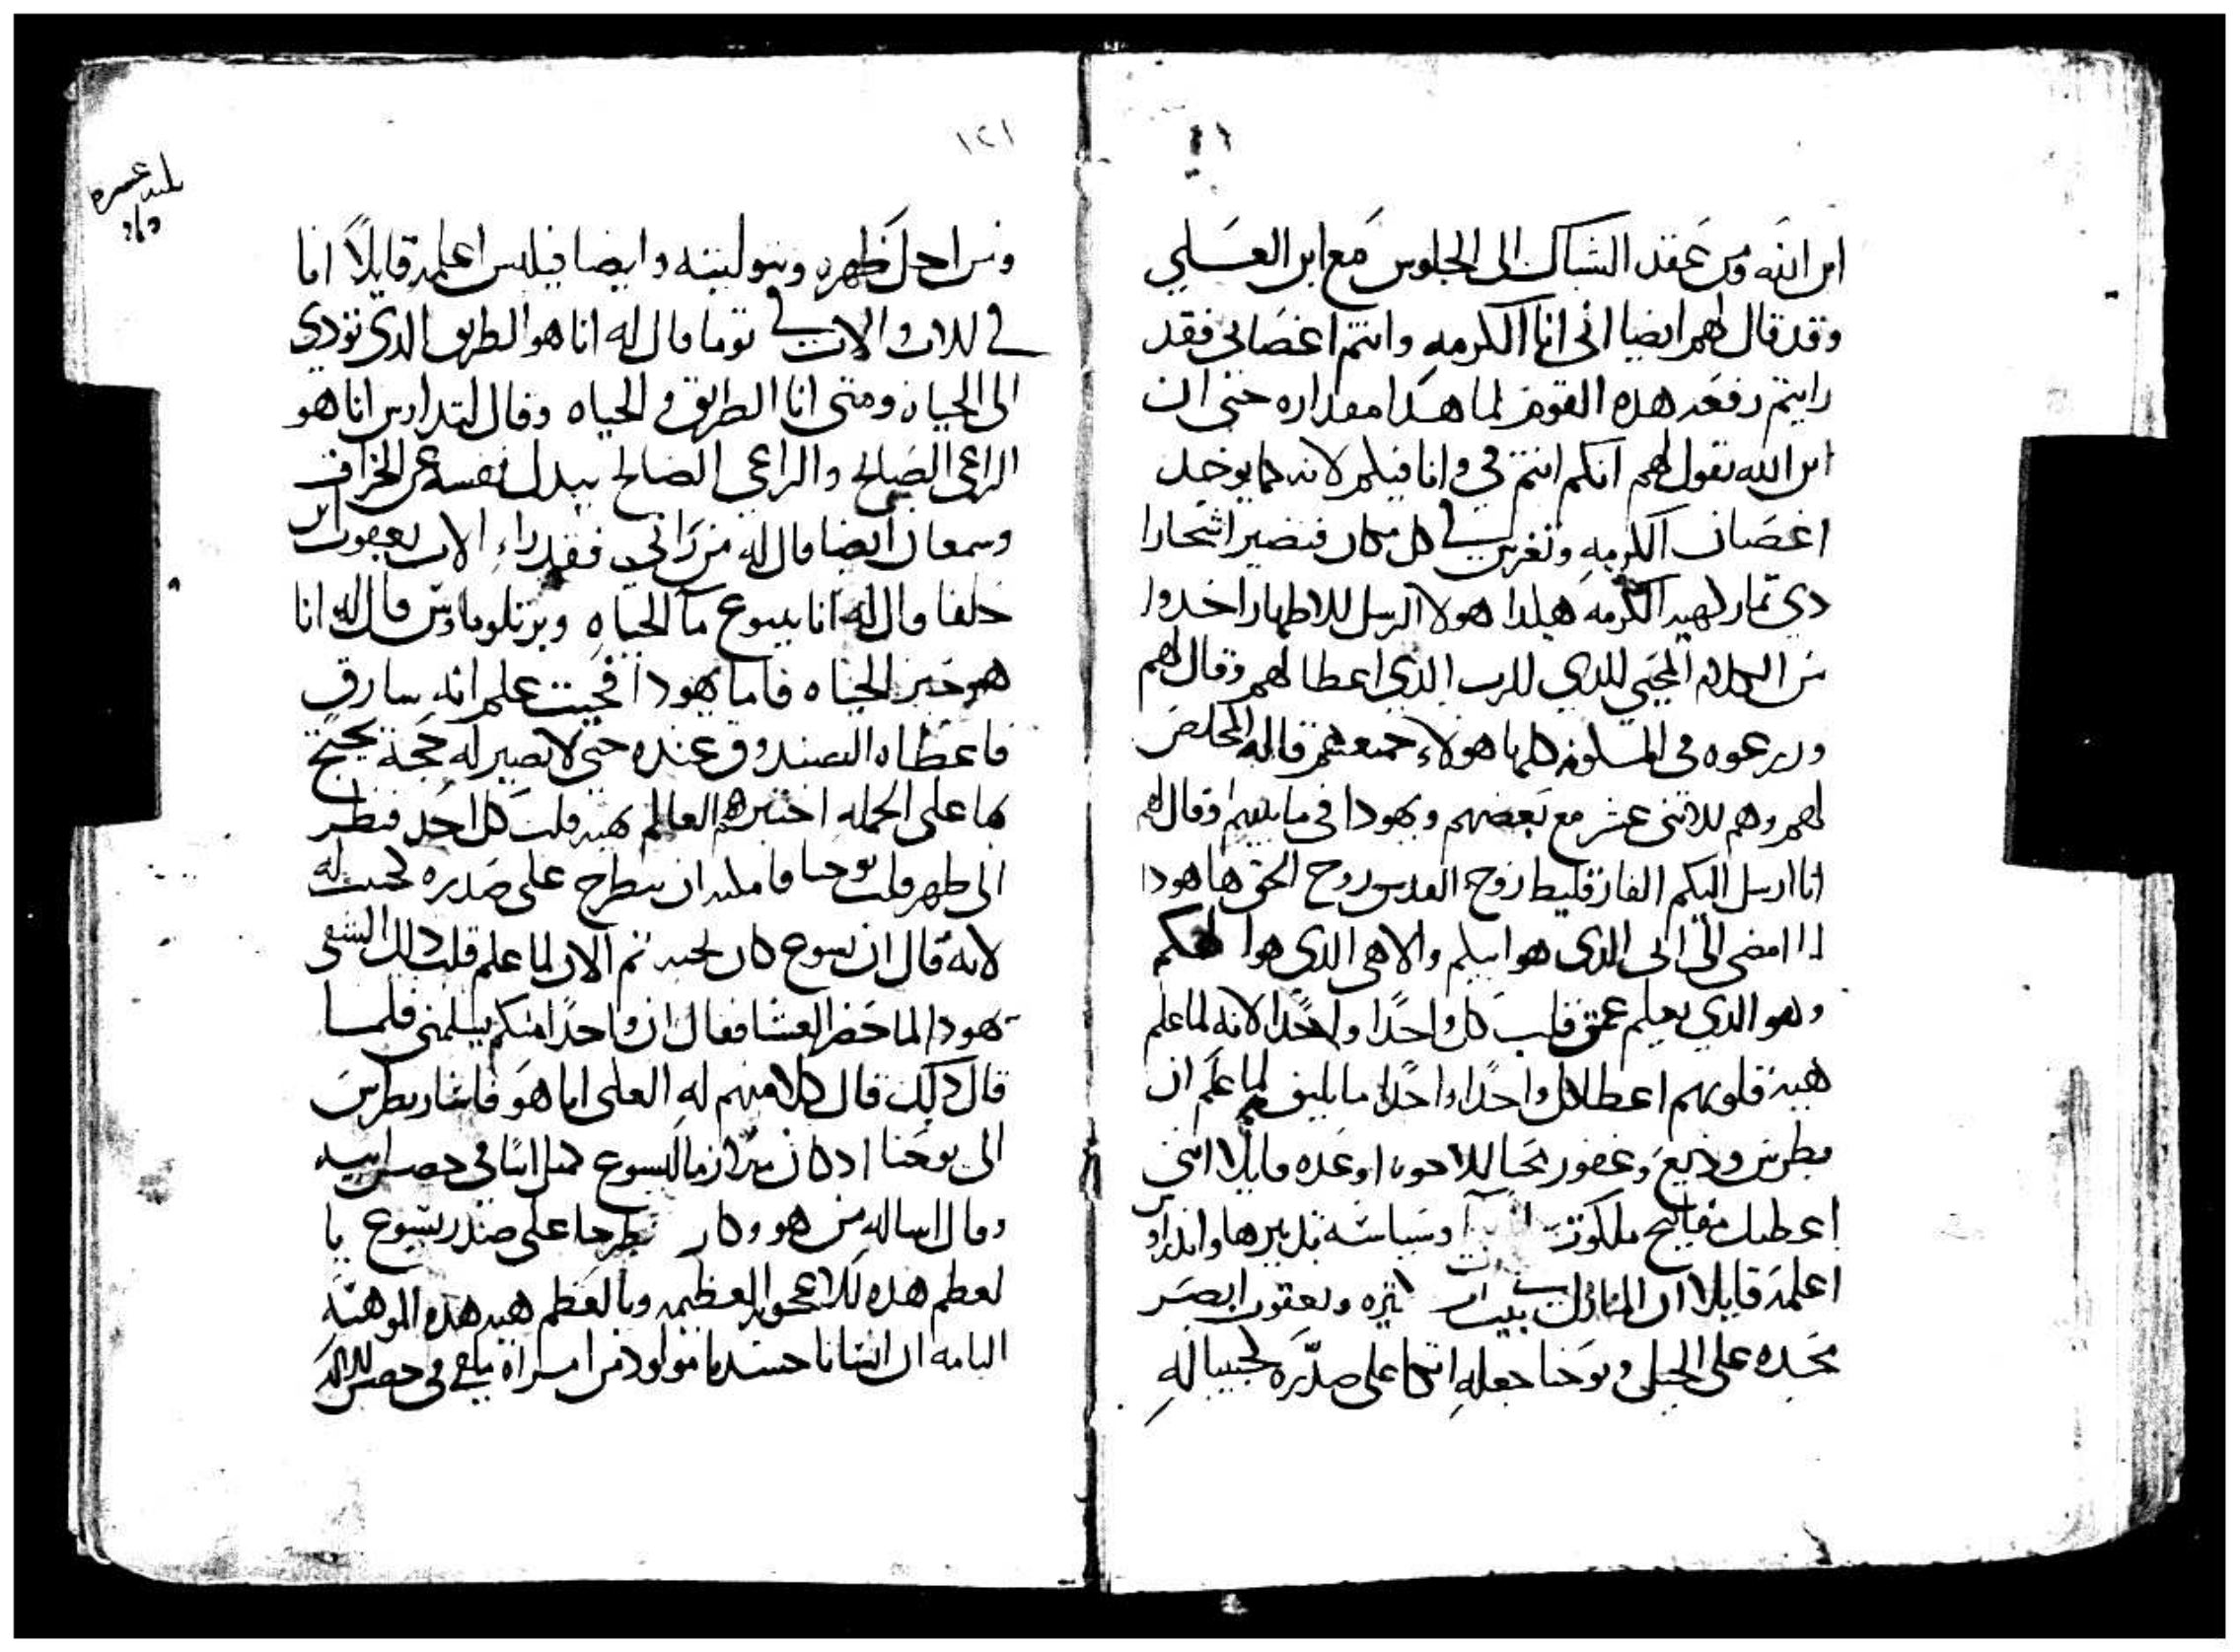 ابن الله ومن عقد الشباك الى الجلوس مع ابن العلي
وقد قال لهم ايضا اني انا الكرمه وانتم اغصاني فقد
رايتم رفعه هده القوم لما هدا مقداره حتى ان
ابن الله يقول لهم انكم انتم في وانا فيكم لانه كما يوخد
اغصان الكرمه وتغرس في كل مكان فتصير اشجارا
دي تمار لهيه الكرمه هكدا هولا الرسل الاطهار اخدوا
من الكلام المحيي الدي للرب الدي اعطا لهم وقال لهم
وزرعوه في المسكونه كلها هولاء جميعهم قاله المخلص
لهم وهم الاتنى عشر مع بعضهم ويهودا في ما بينهم وقال لهم
انا ارسل اليكم الفارقليط روح القدس روح الحق ها هودا
انا امضي الى ابي الدي هو ابيكم والاهي الدي هو الهكم
وهو الدي يعلم عمق قلب كل واحدًا واحدًا لانه لما علم
هيه قلوبهم اعطا لكل واحدًا واحدًا ما يليق لما علم ان
بطرس وديع وغفور محبا للاخوه اوعده قايلا انني
اعطيك مفاتيح ملكوت وسياسه تدبيرها واندراوس
اعلمه قايلا ان المنازل في بيت ابي كتيره ويعقوب ابصر
مجده على الجبل ويوحنا جعله اتكا على صدره لحبيبا له
١٢١
ومن اجل ظهره وبتوليته وايضا فيلبس اعلمه قايلاً انا
في الاب والاب في توما قال له انا هو الطريق الدي تودي
الى الحياه ومتى انا الطريق والحياه وقال لتداوس انا هو
الراعي الصالح والراعي الصالح يبدل نفسه عن الخراف
وسمعان ايضا قال له من راني فقد راء الاب يعقوب ابن
حلفا قال له انا ينبوع ما الحياه وبرتلوماوس قال له انا
هو خبز الحياه فاما يهودا فحيت علم انه سارق
فاعطاه الصندوق عنده حتى لا تصير له حجة يحتج
بها على الجمله اختبرهم العالم بهيه قلب كل احد فنظر
الى طهر قلب يوحنا فامكنه ان يتطرح على صدره لحبيب له
لانه قال ان يسوع كان يحبه تم الان لما علم قلب دلك الشقي
يهودا لما حضر العشا فقال ان واحدًا منكم يسلمني فلما
قال دلك قال كلا منهم له العلي انا هو فاشار بطرس
الى يوحنا اد كان ملازما ليسوع كمثل انسان في حضن ابيه
وقال اساله من هو وكان يطرحا على صدر يسوع يا
لعظم هده الاعجوبه العظيمه ويا لعظم هيه هده الموهبه
التامه ان انسانا جسدانيا مولود من امراه يتكي في حضن الاله